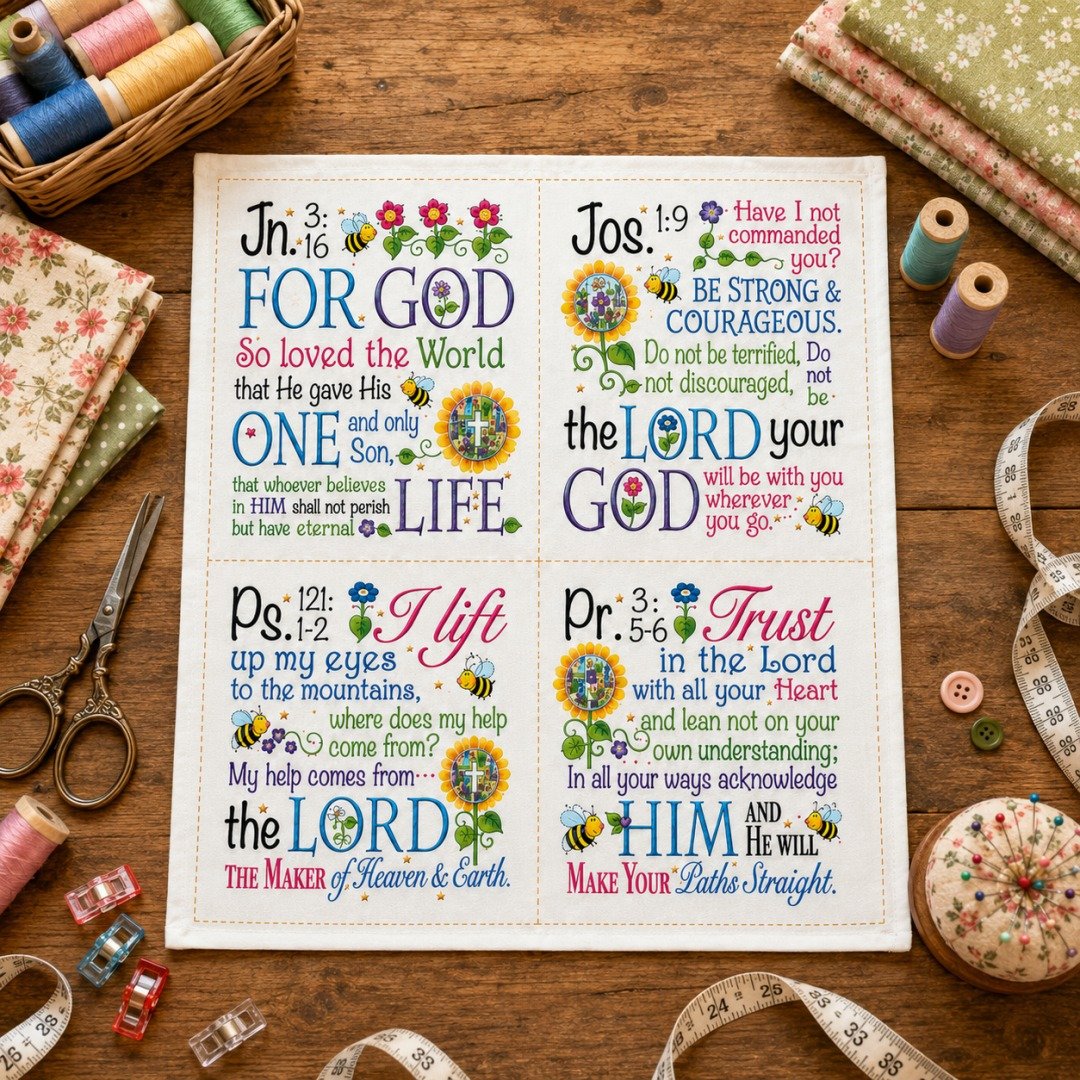 Jn. 3:16
FOR GOD
So loved the World
that He gave His
ONE and only Son,
that whoever believes
in HIM shall not perish
but have eternal LIFE
Jos. 1:9
Have I not
commanded
you?
BE STRONG &
COURAGEOUS.
Do not be terrified, Do
not discouraged, not
be
the LORD your
GOD will be with you
wherever
you go.
Ps. 121:1-2
I lift
up my eyes
to the mountains,
where does my help
come from?
My help comes from...
the LORD
THE MAKER of Heaven & Earth.
Pr. 3:5-6
Trust
in the Lord
with all your Heart
and lean not on your
own understanding;
In all your ways acknowledge
HIM AND HE WILL
MAKE YOUR Paths Straight.